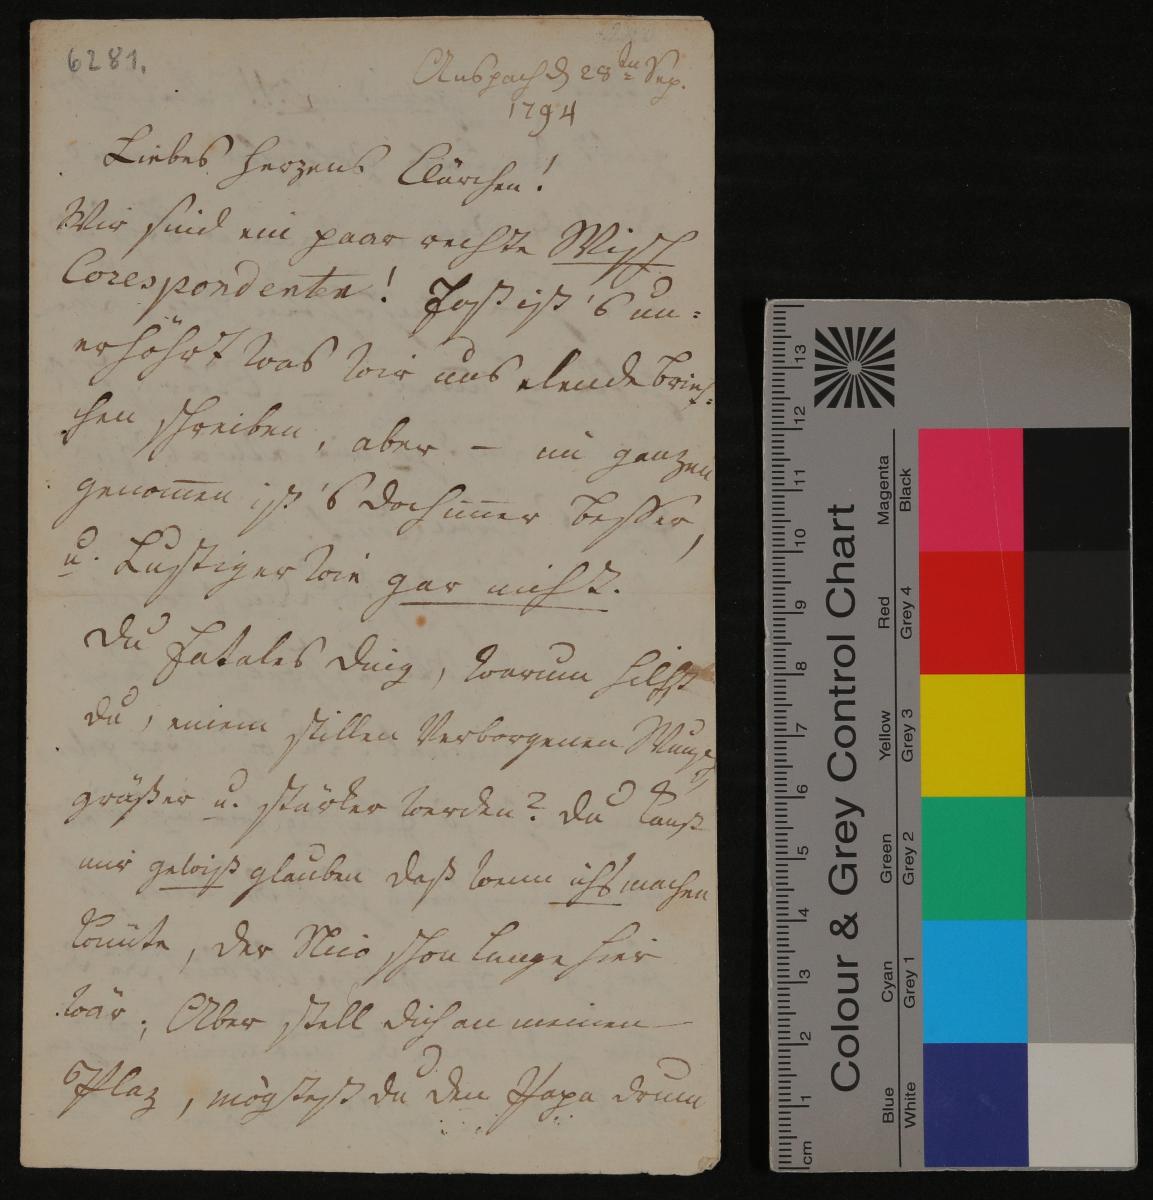 6281.
Anspach d 28ten Sep.
1794
Liebes herzens Clärchen!
Wir sind ein paar rechte Misch
Corespondenten! Fast ist's un-
erhöhrt was wir uns elende brief-
chen schreiben, aber – im ganzen
genom̅en ist's doch im̅er besser,
u. Lustiger wie gar nicht.
Du fatales Ding, warum hilfst
du, einem stillen Verborgenen
gräßer u. stärker werden? Du kanst
mir gewiß glauben daß wenn ichs machen
könnte, der schon lange hier
wär, Aber stell dich an meinen
Plaz, mögtest du den Papa drum
Colour & Grey Control Chart
Blue Cyan Green Yellow Red Magenta
White Grey 1 Grey 2 Grey 3 Grey 4 Black
cm 1 2 3 4 5 6 7 8 9 10 11 12 13